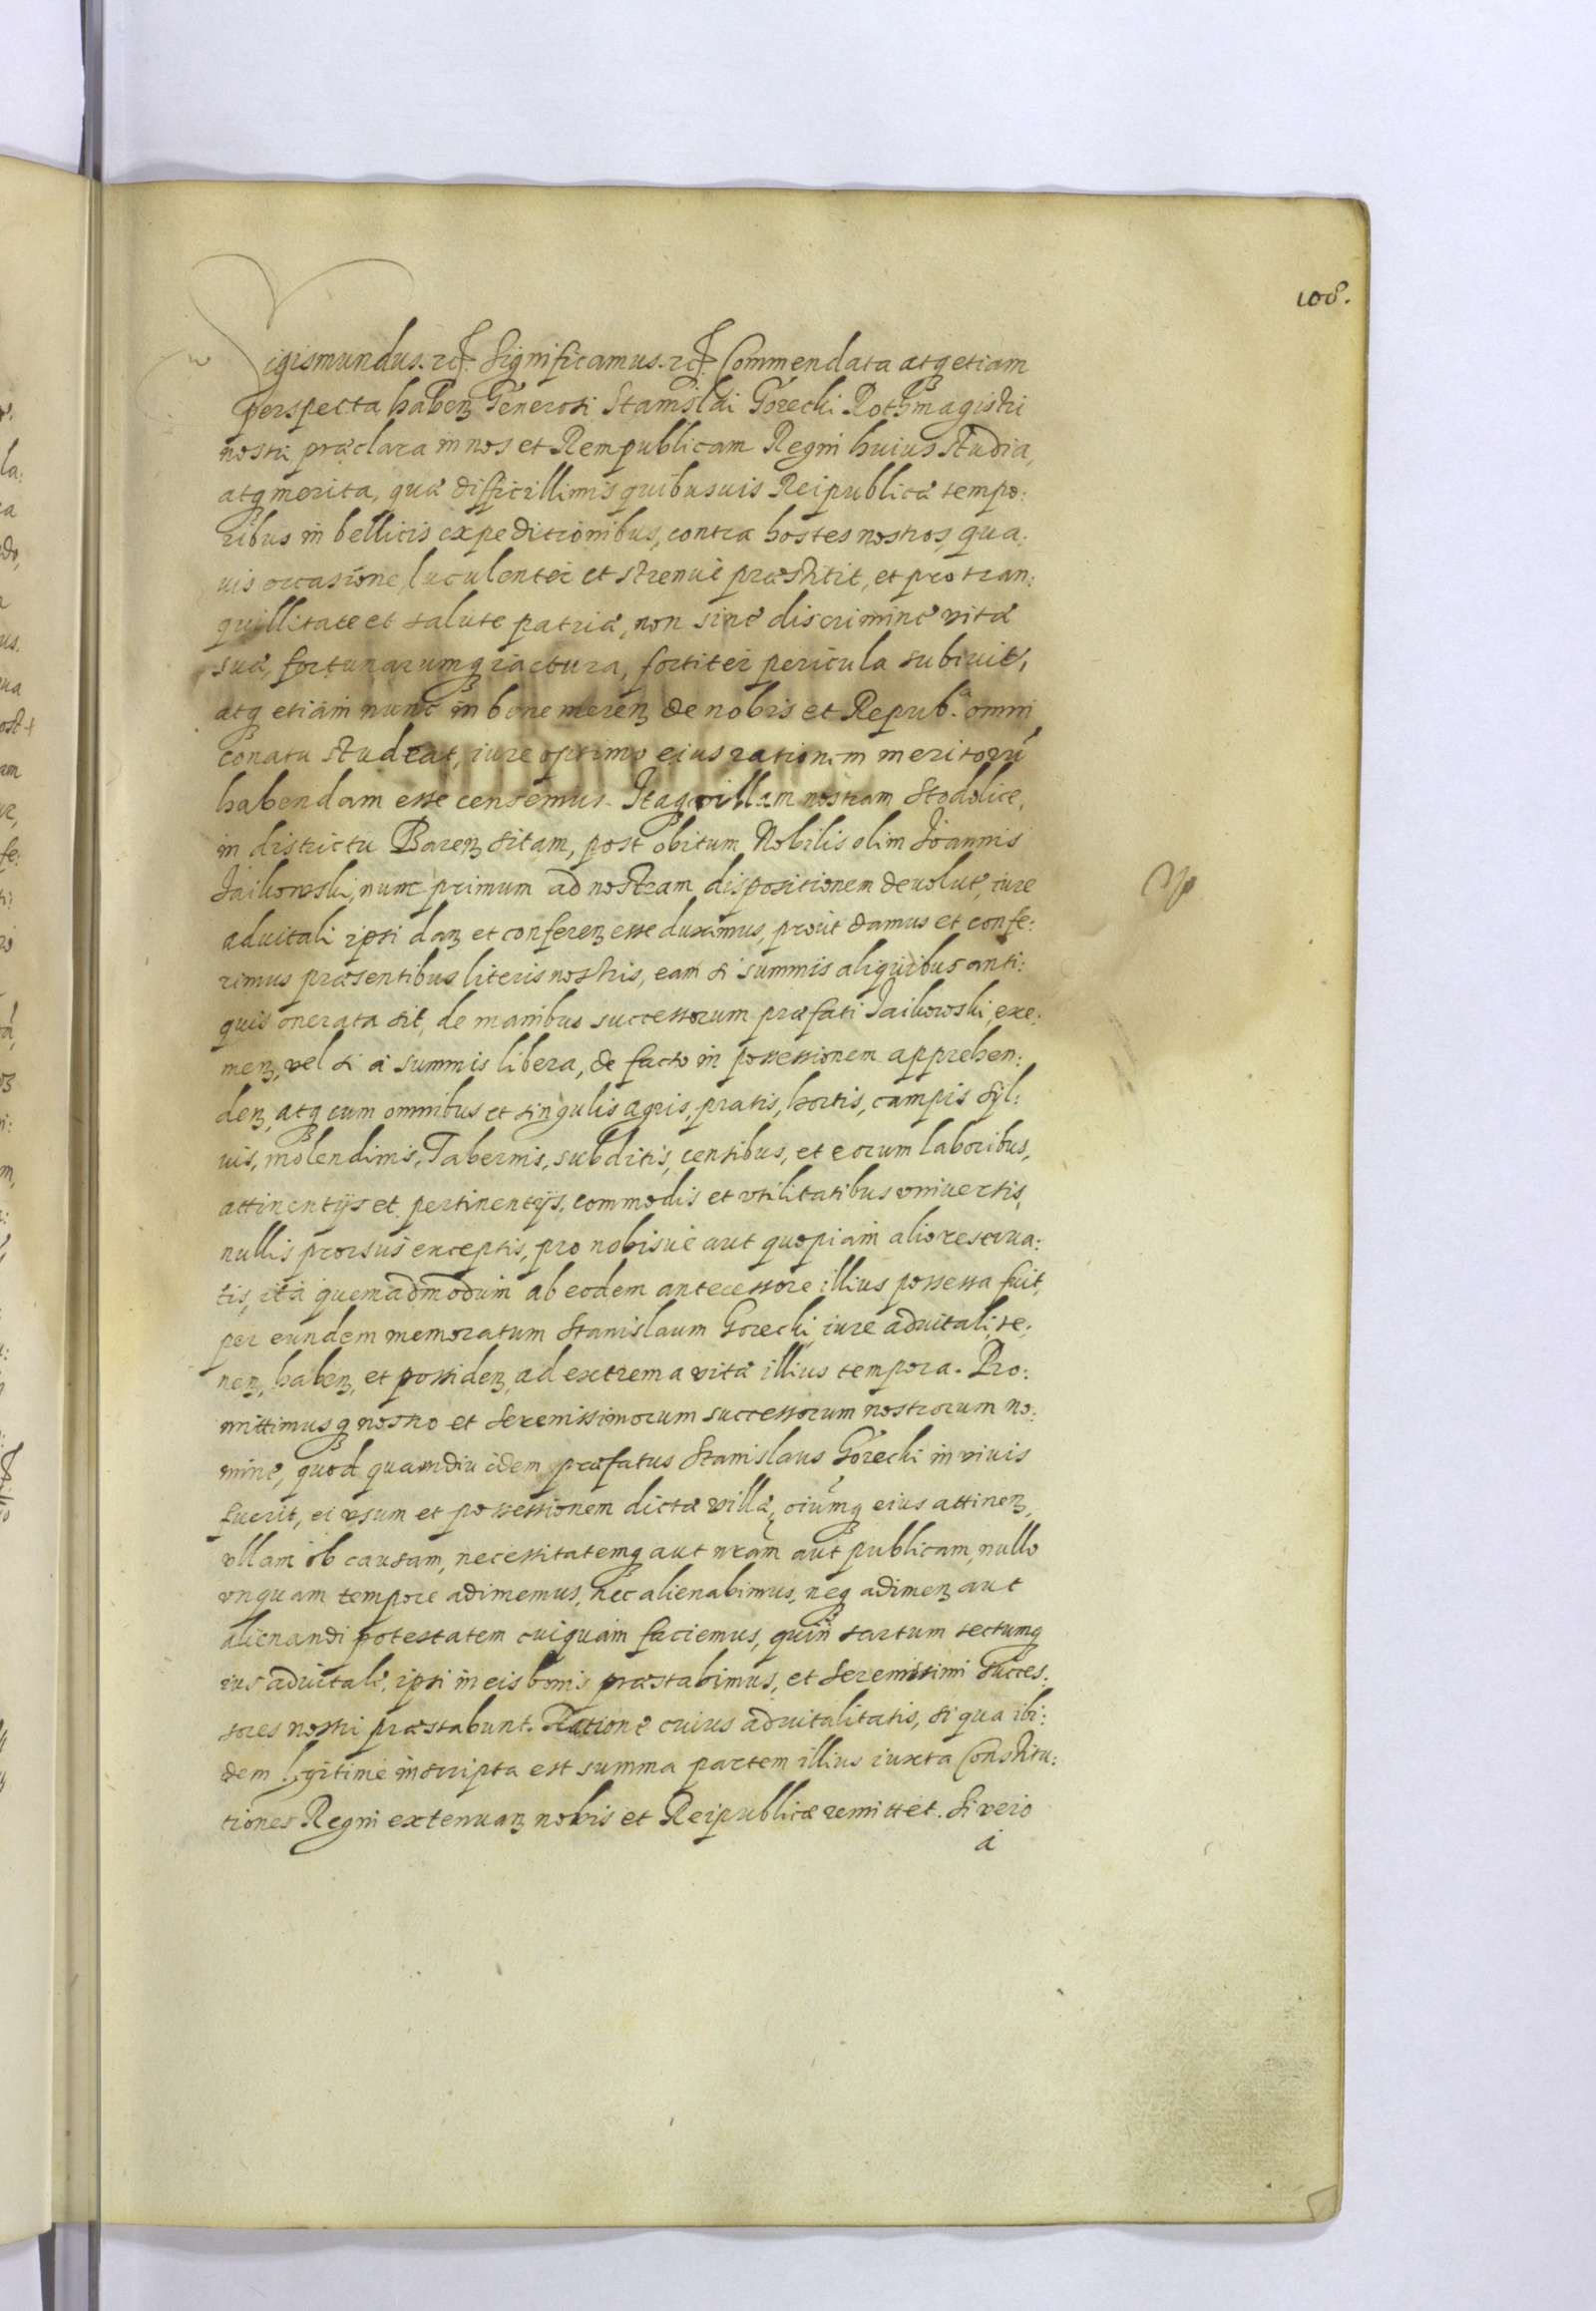 108.
Sigismundus. etc. Significamus. etc. Commendata atq etiam
perspecta haben Generosi Stanislai Górecki Rothmagistri
nostri præclara in nos et Rempublicam Regni huius studia,
atq merita, quæ difficillimis quibusuis Reipublicæ tempo:
ribus in bellicis expeditionibus, contra hostes nostros, qua:
uis occasione, luculenter et strenue præstitit, et pro tran:
quillitate et salute patriæ, non sine discrimine vitæ
suæ, fortunarumq iactura, fortiter pericula subiuit,
atq etiam nunc in bene meren de nobis et Repub. omni
conatu studeat, iure optimo eius rationem meritorũ
habendam esse censemus. Itaq villam nostram Stodolice,
in districtu Baren sitam, post obitum Nobilis olim Ioannis
Jaikowski, nunc primum ad nostram dispositionem deuolut, iure
aduitali ipsi dan et conferen esse duximus, prout damus et confe:
rimus præsentibus literis nostris, eam si summis aliquibus anti:
quis onerata sit, de manibus successorum præfati Jaikowski, exe:
men, vel si à summis libera, de facto in possessionem apprehen:
den, atq cum omnibus et singulis agris, pratis, hortis, campis syl:
uis, molendinis, Tabernis, subditis, censibus, et eorum laboribus,
attinentijs et pertinentijs, commodis et vtilitatibus vniuersis,
nullis prorsus exceptis, pro nobisue aut quopiam alio reserua:
tis, ità quemadmodum ab eodem antecessore illius possessa fuit,
per eundem memoratum Stanislaum Gorecki, iure aduitali, te:
nen, haben, et possiden, ad extrema vitæ illius tempora. Pro:
mittimusq nostro et Serenissimorum successorum nostrorum no:
mine, quod quamdiu idem præfatus Stanislaus Górecki in viuis
fuerit, ei vsum et possessionem dictæ villæ, oiumq eius attinen,
vllam ob causam, necessitatemq aut nram aut publicam, nullo
vnquam tempore adimemus, nec alienabimus, neq adimen aut
alienandi potestatem cuiquam faciemus, quin sartum tectumq
ius aduitale, ipsi in eis bonis præstabimus, et Serenissimi Succes:
sores nostri præstabunt. Ratione cuius aduitalitatis, si qua ibi:
dem legitime inscripta est summa partem illius iuxta Constitu:
tiones Regni extenuan nobis et Reipublicæ remittet. Si vero
à